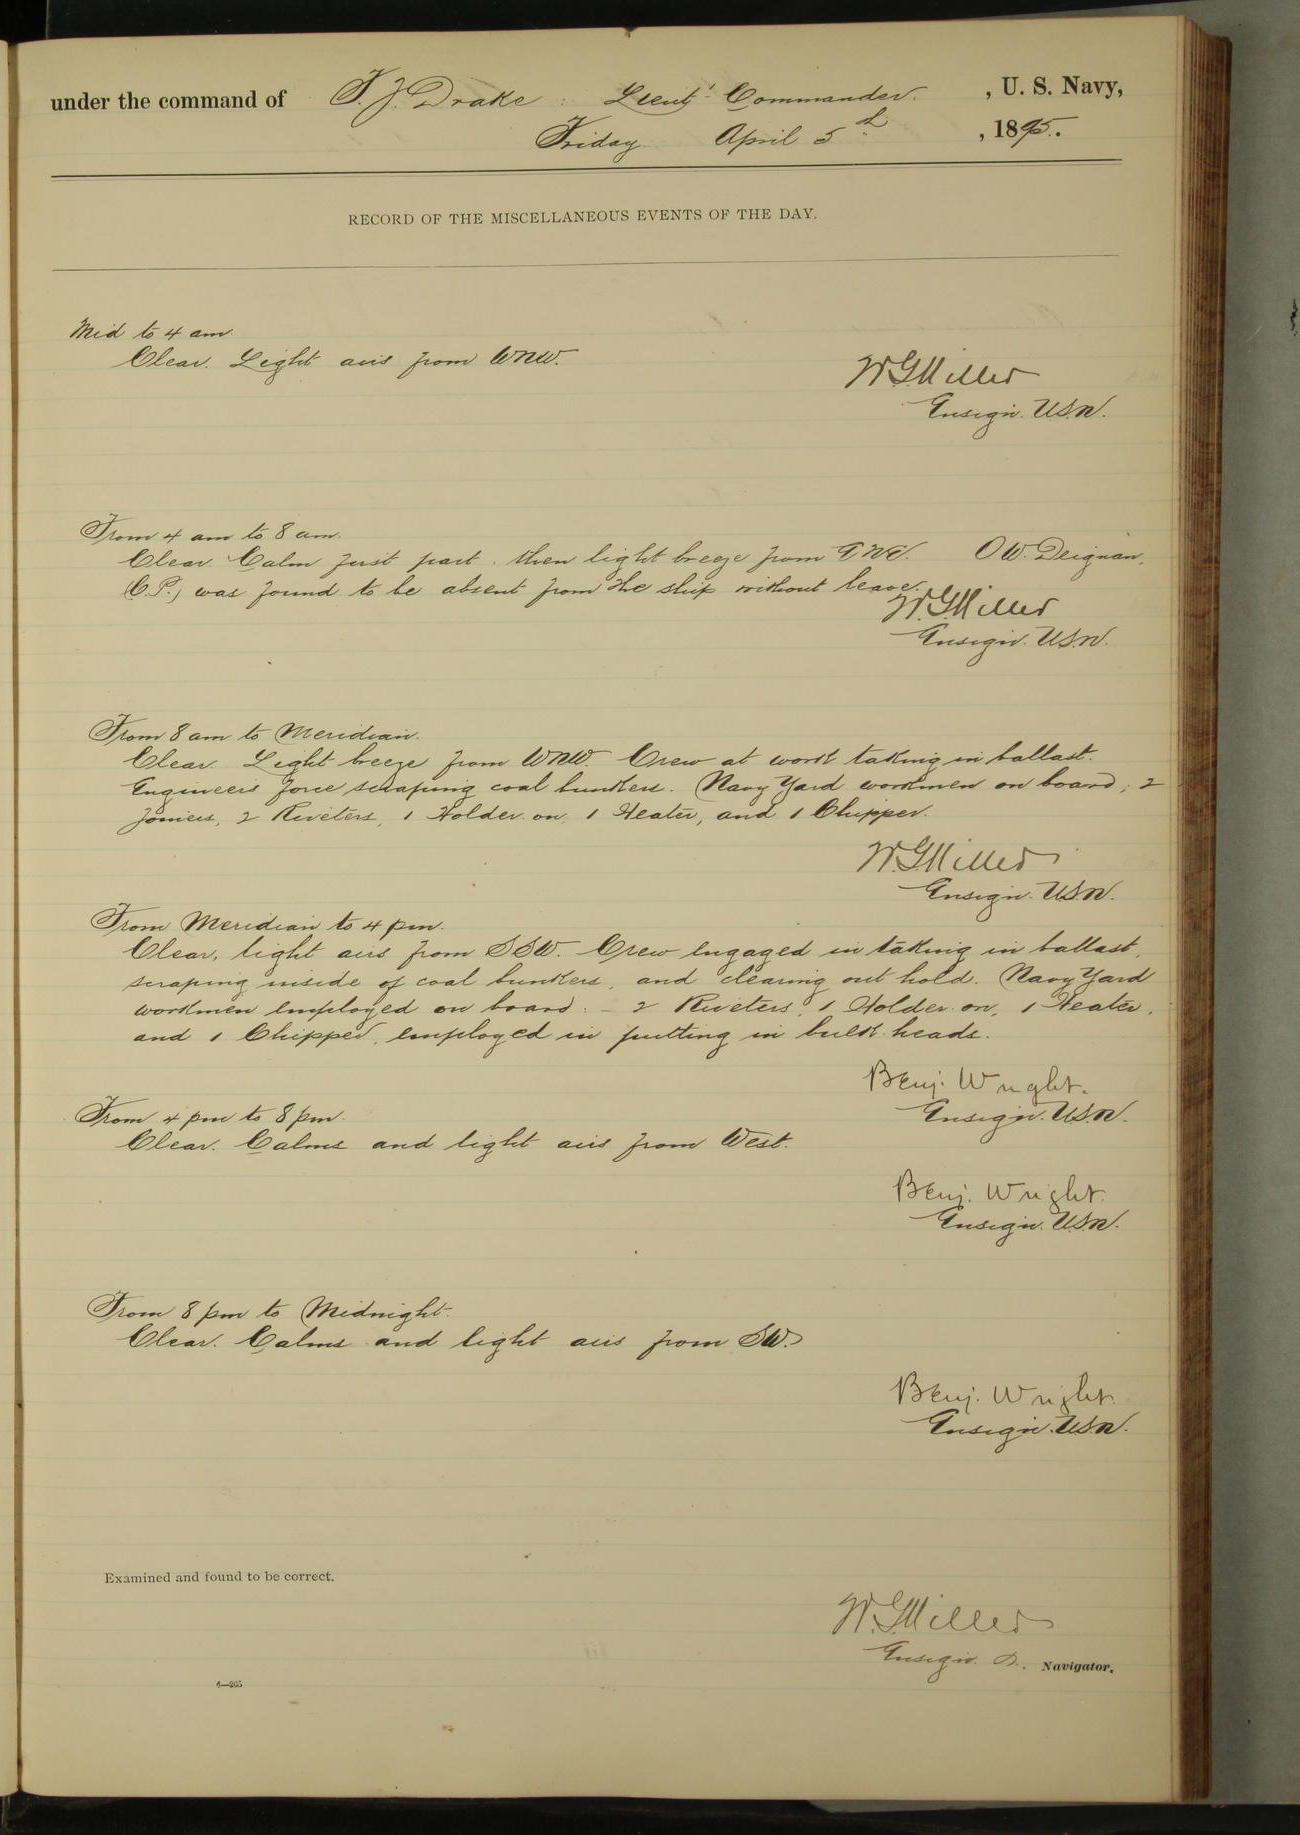 under the command of F. J. Drake : Lieut Commander. , U. S. Navy,
Friday April 5th , 1895.
RECORD OF THE MISCELLANEOUS EVENTS OF THE DAY.
Mid to 4 am.
Clear. Light airs from WNW.
W.G. Miller
Ensign. U.S.N.
From 4 am to 8 am.
Clear. Calm first part. then light breeze from O.W. Deignan,
(C.P.) was found to be absent from the ship without leave.
W.G. Miller
Ensign. U.S.N.
From 8 am to Meridian.
Clear. Light breeze from WNW. Crew at work taking in ballast.
Engineers force scraping coal bunkers. Navy Yard workmen on board; 2
Joiners, 2 Riveters, 1 Holder on, 1 Heater, and 1 Chipper.
W.G. Miller
Ensign. U.S.N.
From Meridian to 4 pm.
Clear, light airs from SSW. Crew engaged in taking in ballast,
scraping inside of coal bunkers, and clearing out hold. Navy Yard
workmen employed on board: – 2 Riveters, 1 Holder on, 1 Heater,
and 1 Chipper, employed in putting in bulk heads.
Benj. Wright.
Ensign. U.S.N.
From 4 pm to 8 pm.
Clear. Calms and light airs from West.
Benj. Wright.
Ensign. U.S.N.
From 8 pm to Midnight.
Clear. Calms and light airs from SW.
Benj. Wright.
Ensign. U.S.N.
Examined and found to be correct.
W.G. Miller
Ensign Navigator.
6—205